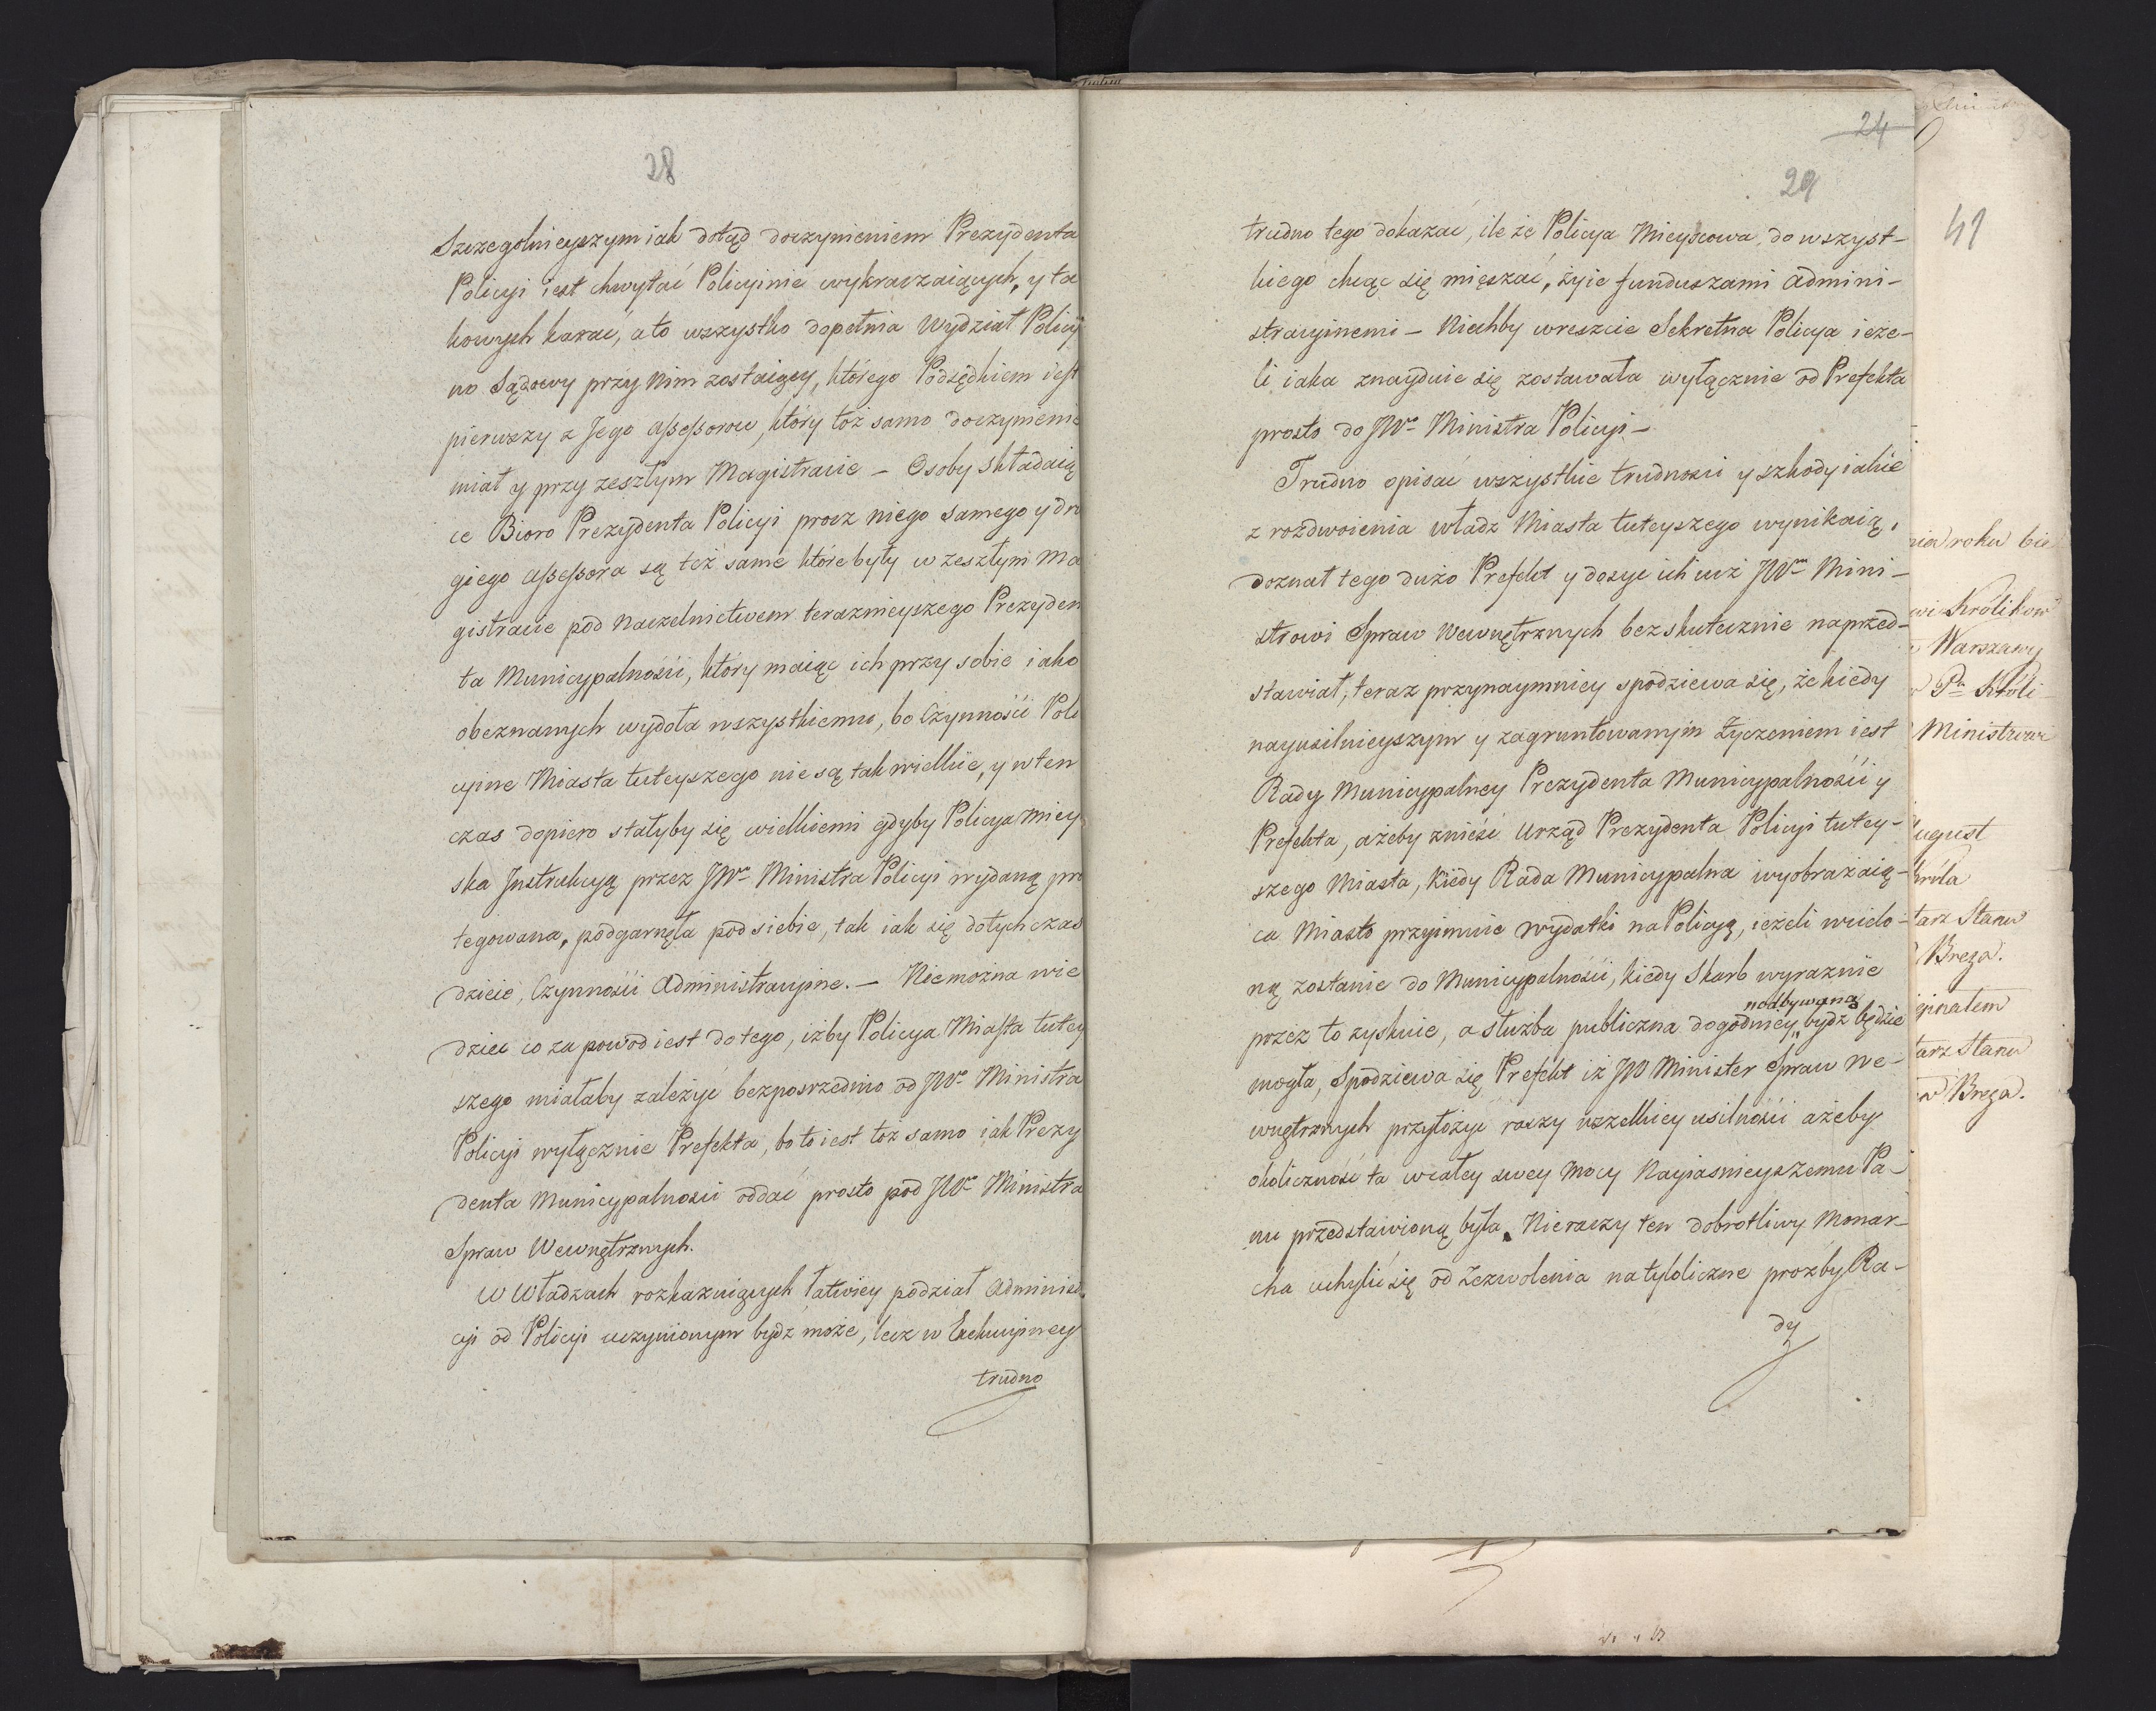 28
Szczegolnieyszym iak dotąd doczynieniem Prezydenta
Policyi iest chwytać Policyinie wykraczaiących, y ta
kowych karać, a to wszystko dopełnia Wydział Policyi
no Sądowy przy Nim zostaiący, którego Podsędkiem iest
pierwszy z Jego assessorow, który toż samo doczynienie
miał y przy zeszłym Magistracie – Osoby składaią
ce Bioro Prezydenta Policyi procz niego samego y dru
giego assessora są też same które były w zeszłym Ma
gistracie pod Naczelnictwem teraznieyszego Prezyden
ta Municypalności, który maiąc ich przy sobie iako
obeznanych wydoła wszystkiemu, bo Czynności Poli
cyine Miasta tuteyszego nie są tak wielkie, y w ten
czas dopiero stałyby się wielkiemi gdyby Policya miey
ska Jnstrukcyą przez JWo Ministra Policyi wydaną pro
tegowana, podgarnęła pod siebie, tak iak się dotychczas
dzieie, Czynności Administracyine. – Nie można wie
dzieć co za powod iest do tego, iżby Policya Miasta tutey
szego miałaby zależyć bezposrzednio od JWo Ministra
Policyi wyłącznie Prefekta, bo to iest toż samo iak Prezy
denta Municypalności oddać prosto pod JWo Ministra
Spraw Wewnętrznych.
W Władzach rozkazuiących łatwiey podział Administ.
cyi od Policyi uczynionym bydź może, lecz w Exekucyiney
trudno
24
29
trudno tego dokazać, ile że Policya Mieyscowa, do wszyst-
kiego chcąc się mięszać, żyie funduszami admini-
stracyinemi – Niechby wreszcie Sekretna Policya ieże-
li iaka znayduie się zostawała wyłącznie od Prefekta
prosto do JWo Ministra Policyi –
Trudno opisać wszystkie trudności y szkody iakie
z rozdwoienia władz Miasta tuteyszego wynikaią,
doznał tego dużo Prefekt y dosyć ich już JWmu Mini-
strowi Spraw Wewnętrznych bezskutecznie naprzed-
stawiał, teraz przynaymniey spodziewa się, że kiedy
nayusilnieyszym y zagruntowanym życzeniem iest
Rady Municypalney Prezydenta Municypalności y
Prefekta, ażeby znieść Urząd Prezydenta Policyi tutey-
szego Miasta, kiedy Rada Municypalna wyobrażaią-
ca Miasto przyimuie Wydatki na Policyą, ieżeli wcielo-
ną zostanie do Municypalności, kiedy Skarb wyraznie
nadbywaną
przez to zyskuie, a służba publiczna dogodniey bydź będzie
mogła, Spodziewa się Prefekt iż JW Minister Spraw We-
wnętrznych przyłożyć raczy wszelkiey usilności ażeby
okoliczność ta w całey swey Mocy Nayiasnieyszemu Pa-
nu przedstawioną była. Nieraczy ten dobrotliwy Monar-
cha uchylić się od Zezwolenia na tyloliczne prozby Ra-
dy
41
roku bie
Królikow
Warszawy
Pa Króli
Ministrowi
ugust
Króla
tarz Stanu
Breza.
ginałem
tarz Stanu
Breza.